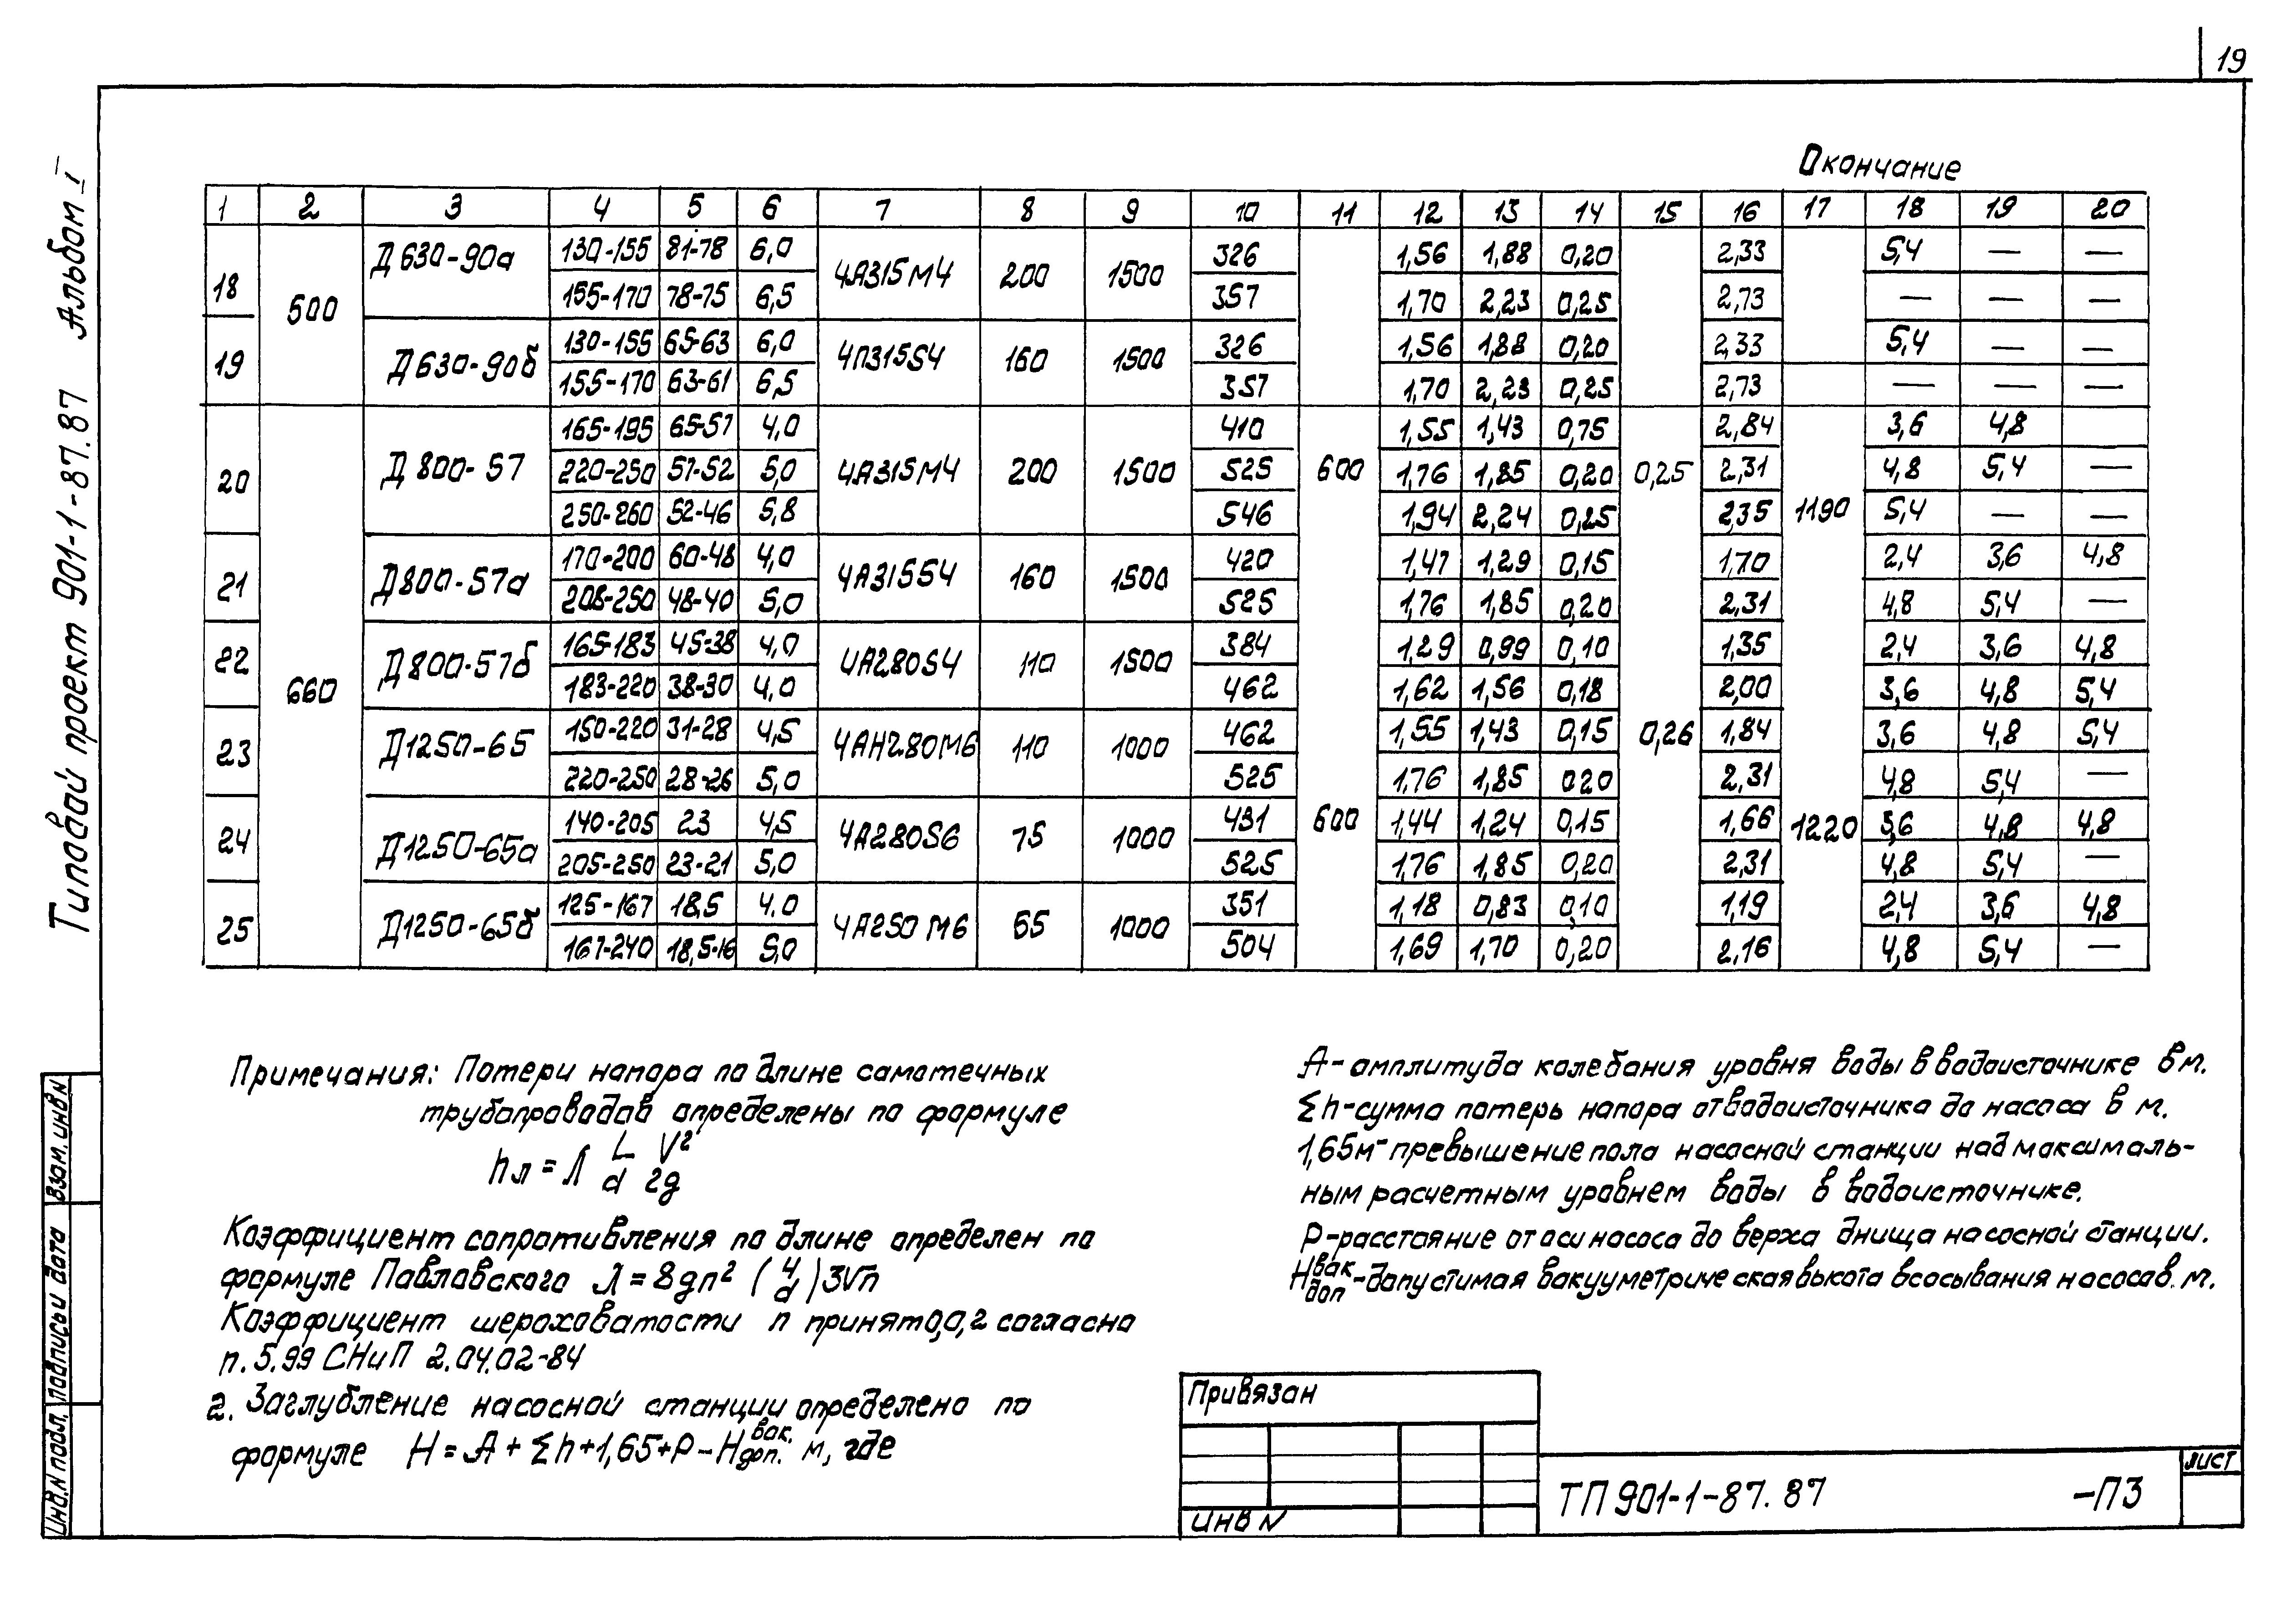 19
Типовой проект 901-1-87.87 Альбом I
Окончание
1 2 3 4 5 6 7 8 9 10 11 12 13 14 15 16 17 18 19 20
18 500 Д630-90а 130-155 81-78 6,0 4А315М4 200 1500 326 1,56 1,88 0,20 2,33 5,4 — —
155-170 78-75 6,5 357 1,70 2,23 0,25 2,73 — — —
19 Д630-90б 130-155 65-63 6,0 4П315S4 160 1500 326 1,56 1,88 0,20 2,33 5,4 — —
155-170 63-61 6,5 357 1,70 2,23 0,25 2,73 — — —
20 660 Д800-57 165-195 65-57 4,0 4А315М4 200 1500 410 600 1,55 1,43 0,75 0,25 2,84 1190 3,6 4,8
220-250 57-52 5,0 525 1,76 1,85 0,20 2,31 4,8 5,4 —
250-260 52-46 5,8 546 1,94 2,24 0,25 2,35 5,4 — —
21 Д800-57а 170-200 60-48 4,0 4А315S4 160 1500 420 1,47 1,29 0,15 1,70 2,4 3,6 4,8
208-250 48-40 5,0 525 1,76 1,85 0,20 2,31 4,8 5,4 —
22 Д800-57б 165-183 45-38 4,0 4А280S4 110 1500 384 1,29 0,99 0,10 1,35 2,4 3,6 4,8
183-220 38-30 4,0 462 1,62 1,56 0,18 2,00 3,6 4,8 5,4
23 Д1250-65 150-220 31-28 4,5 4АН280М6 110 1000 462 600 1,55 1,43 0,15 0,26 1,84 1220 3,6 4,8 5,4
220-250 28-26 5,0 525 1,76 1,85 0,20 2,31 4,8 5,4 —
24 Д1250-65а 140-205 23 4,5 4А280S6 75 1000 431 1,44 1,24 0,15 1,66 3,6 4,8 4,8
205-250 23-21 5,0 525 1,76 1,85 0,20 2,31 4,8 5,4 —
25 Д1250-65б 125-167 18,5 4,0 4А250М6 55 1000 351 1,18 0,83 0,10 1,19 2,4 3,6 4,8
167-240 18,5-16 5,0 504 1,69 1,70 0,20 2,16 4,8 5,4 —
Примечания: Потери напора по длине самотечных
трубопроводов определены по формуле
hл = λ L/d V²/2g
Коэффициент сопротивления по длине определен по
формуле Павловского λ = 8gn² (4/d) 3√n
Коэффициент шероховатости n принято,0,2 согласно
п. 5.99 СНиП 2.04.02-84
2. Заглубление насосной станции определено по
формуле H = A + Σh + 1,65 + P – Hвак.доп. м, где
А – амплитуда колебания уровня воды в водоисточнике в м.
Σh – сумма потерь напора от водоисточника до насоса в м.
1,65м – превышение пола насосной станции над максималь-
ным расчетным уровнем воды в водоисточнике.
Р – расстояние от оси насоса до верха днища насосной станции.
Hвак доп – допустимая вакууметрическая высота всасывания насоса в. м.
Привязан
ИНВ N
ТП 901-1-87.87 -ПЗ
Лист
Взам. инв N
Подписи дата
Инв. N подл.